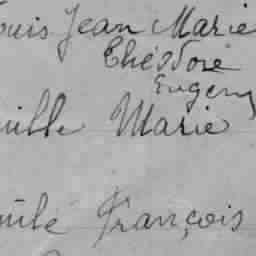 ouis Jean Marie
Théodore
Eugène
ille Marie
mile François